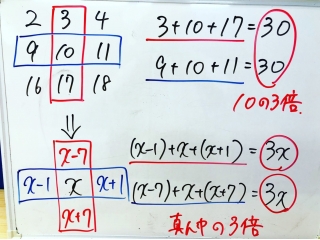 2 3 4
3+10+17=30
9 10 11
9+10+11=30
16 17 18
10の3倍
⇓
x-7
(x-1)+x+(x+1)=3x
x-1 x x+1
(x-7)+x+(x+7)=3x
x+7
真ん中の3倍